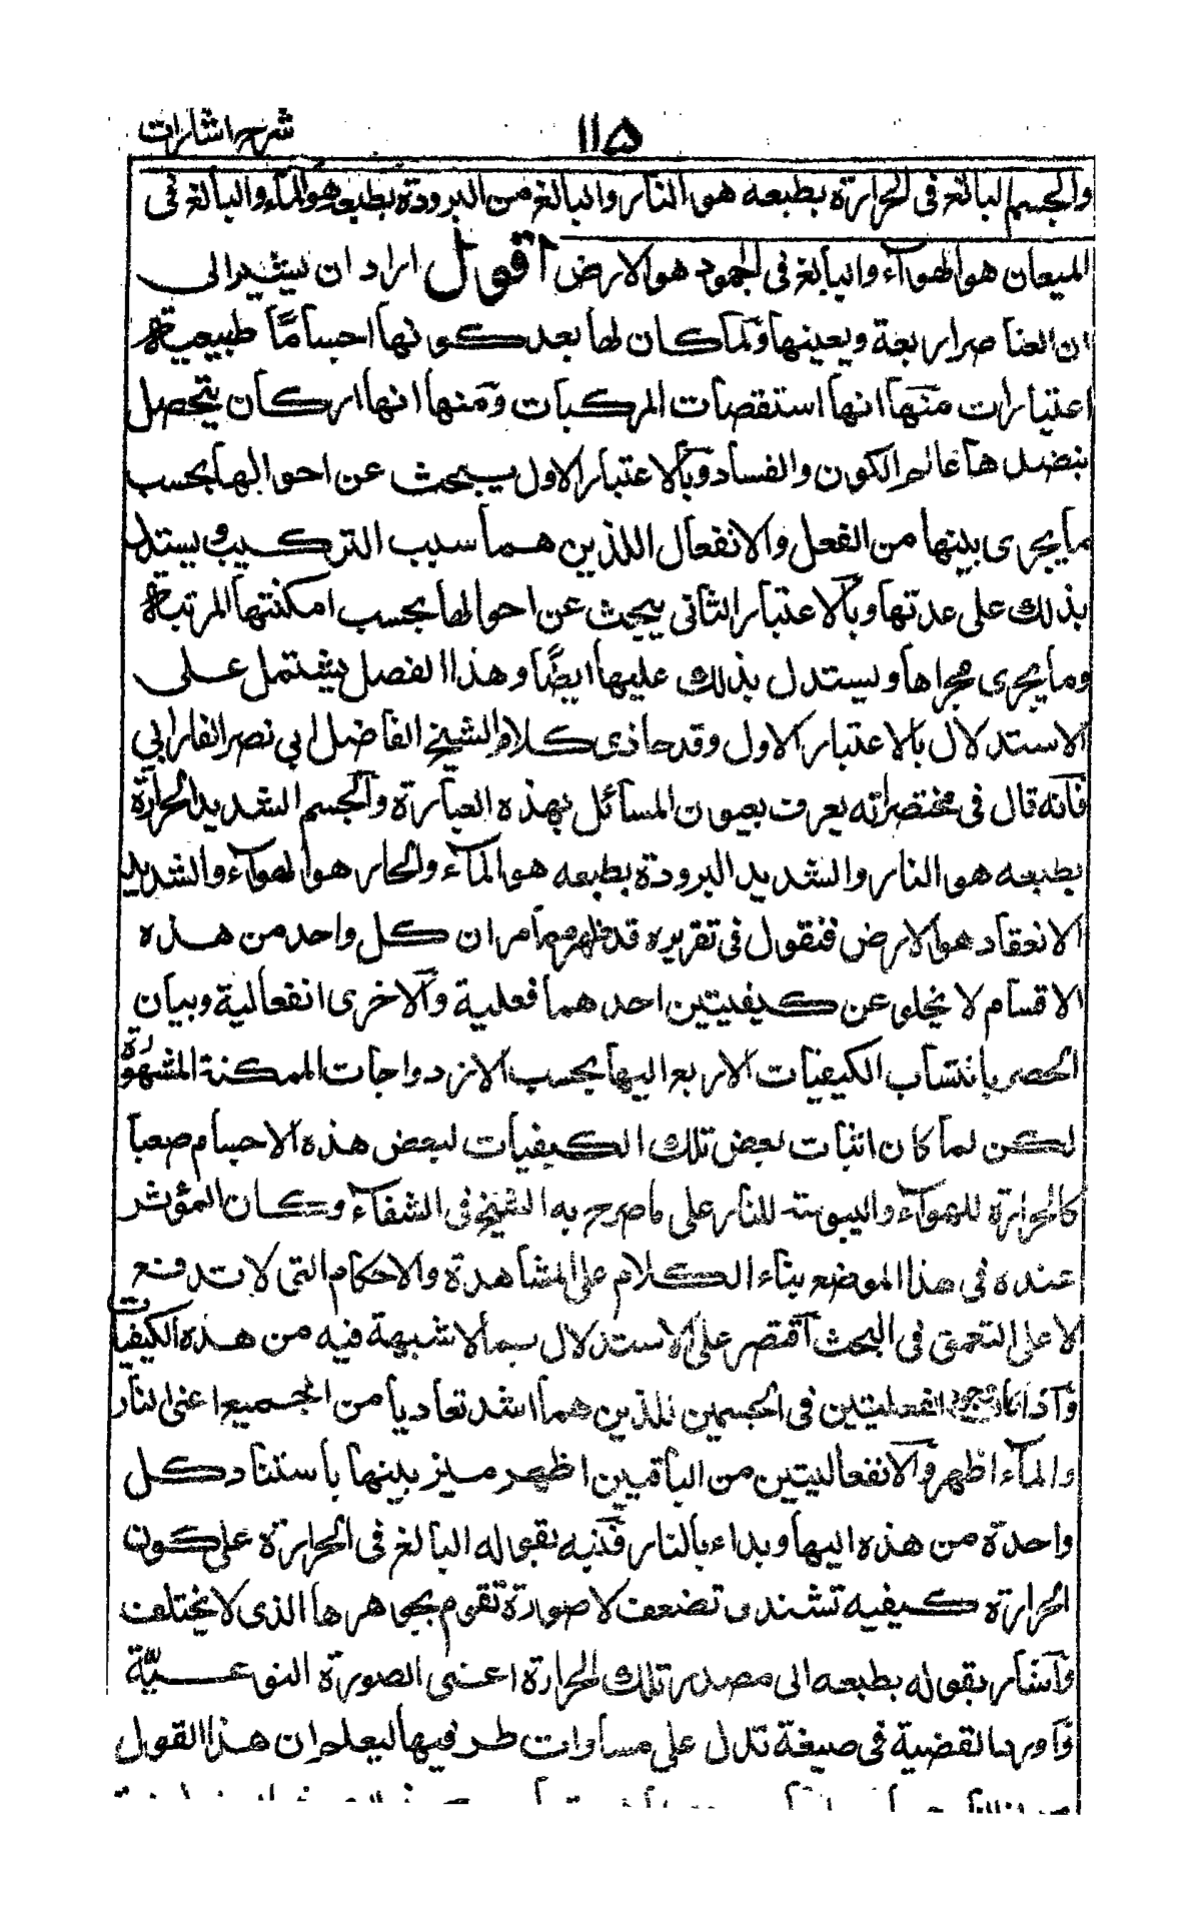 شرح اشارات ١١٥
والجسم البالغ فى الحرارة بطبعه هو النار والبالغ من البرودة بطبعه هو الماء والبالغ فى
الميعان هو الهوآء والبالغ فى الجمود هو الارض اقول اراد ان يشير الى
ان العناصر اربعة ويعينها ولما كان لها بعد كونها اجساما طبيعية
اعتبارات منها انها استقصات المركبات ومنها انها اركان يتحصل
بنضدها عالم الكون والفساد وبالاعتبار الاول يبحث عن احوالها بحسب
ما يجرى بينها من الفعل والانفعال اللذين هما سبب التركيب ويستدل
بذلك على عدتها وبالاعتبار الثانى يبحث عن احوالها بحسب امكنتها المرتبة
وما يجرى مجراها ويستدل بذلك عليها ايضًا وهذا الفصل يشتمل على
الاستدلال بالاعتبار الاول وقد حاذى كلام الشيخ الفاضل ابى نصر الفارابي
فانه قال فى مختصراته يعرف بعيون المسائل بهذه العبارة والجسم الشديد الحرارة
بطبعه هو النار والشديد البرودة بطبعه هو المآء والحار هو الهوآء والشديد
الانعقاد هو الارض فنقول فى تقريره قد ظهر مما مر ان كل واحد من هذه
الاقسام لا يخلو عن كيفيتين احدهما فعلية والاخرى انفعالية وبيان
الحصر بانتساب الكيفيات الاربع اليها بحسب الازدواجات الممكنة المشهورة
لكن لما كان اثبات بعض تلك الكيفيات لبعض هذه الاجسام صعبا
كالحرارة للهوآء واليبوسة للنار على ما صرح به الشيخ فى الشفآء وكان المؤثر
عنده فى هذا الموضع بناء الكلام على المشاهدة والاحكام التى لا تدفع
الا على التعمق فى البحث اقتصر على الاستدلال بما لا شبهة فيه من هذه الكيفيات
وآذا كان الفعليتين فى الجسمين للذين هما اشد تعاديا من الجميع اعنى النار
والمآء اظهر والانفعاليتين من الباقيين اظهر ميز بينها باستناد كل
واحدة من هذه اليها وبداء بالنار فنبه بقوله البالغ فى الحرارة على كون
الحرارة كيفيه تشتد و تضعف لا صورة تقوم بجوهرها الذى لا يختلف
وآشار بقوله بطبعه الى مصدر تلك الحرارة اعنى الصورة النوعيّة
وآورد القضية فى صيغة تدل على مساوات طرفيها ليعلم ان هذا القول